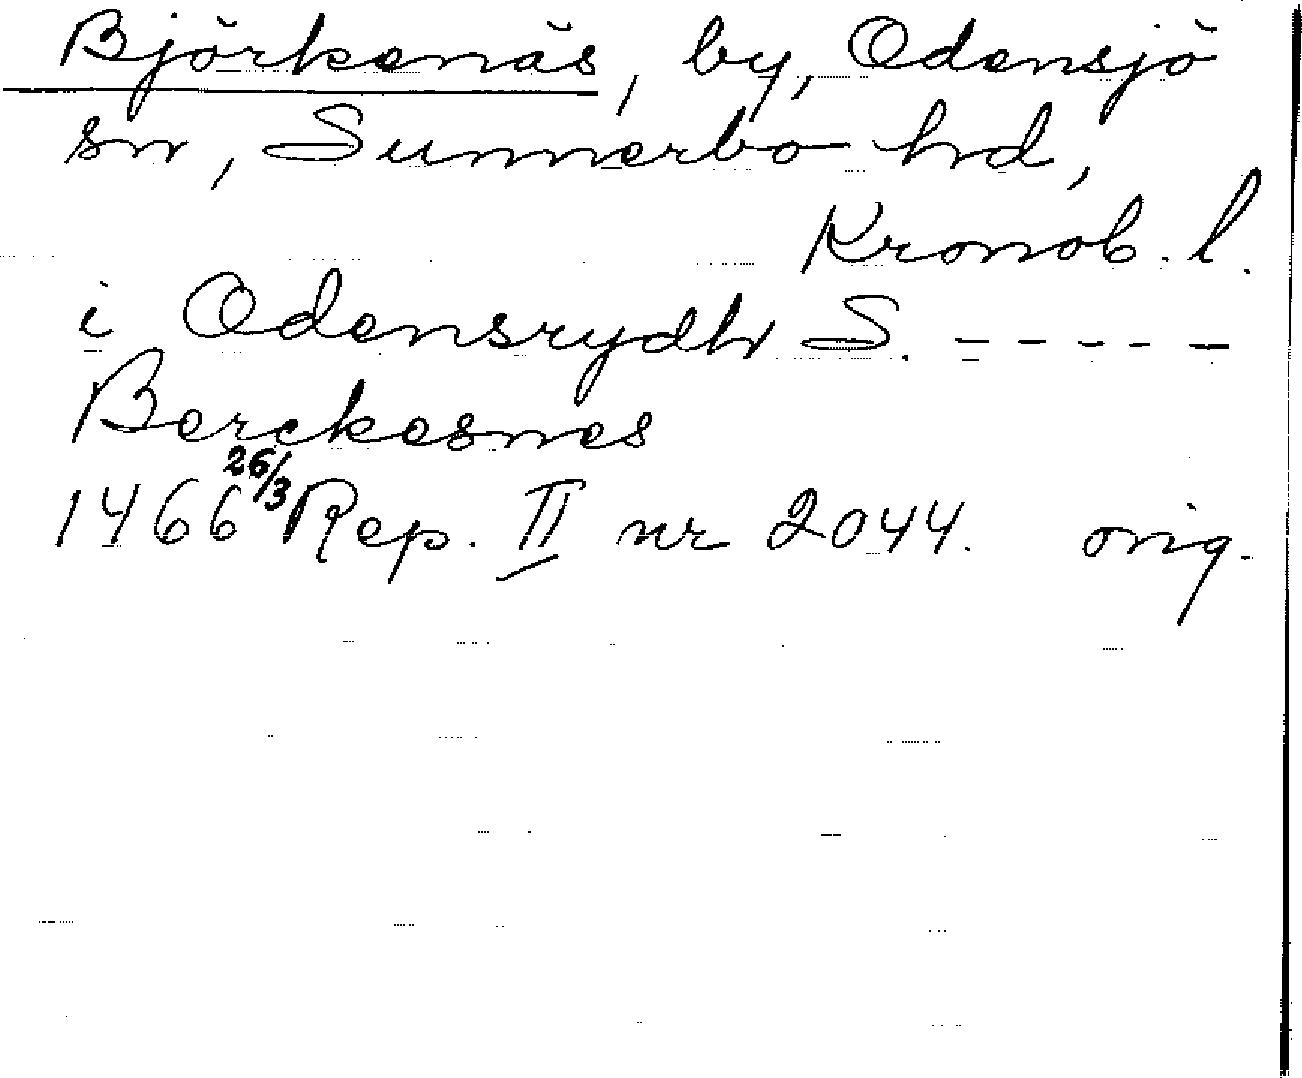 Björkenäs, by, Odensjö
sn, Sunnerbo hd,
Kronob. l.
i Odensrydh S. - - - - -
Berckesnes
1466 26/3 Rep. II nr 2044. orig.